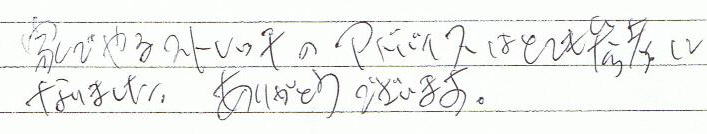 家でやるストレッチのアドバイスはとても参考に
なりました。ありがとうございます。